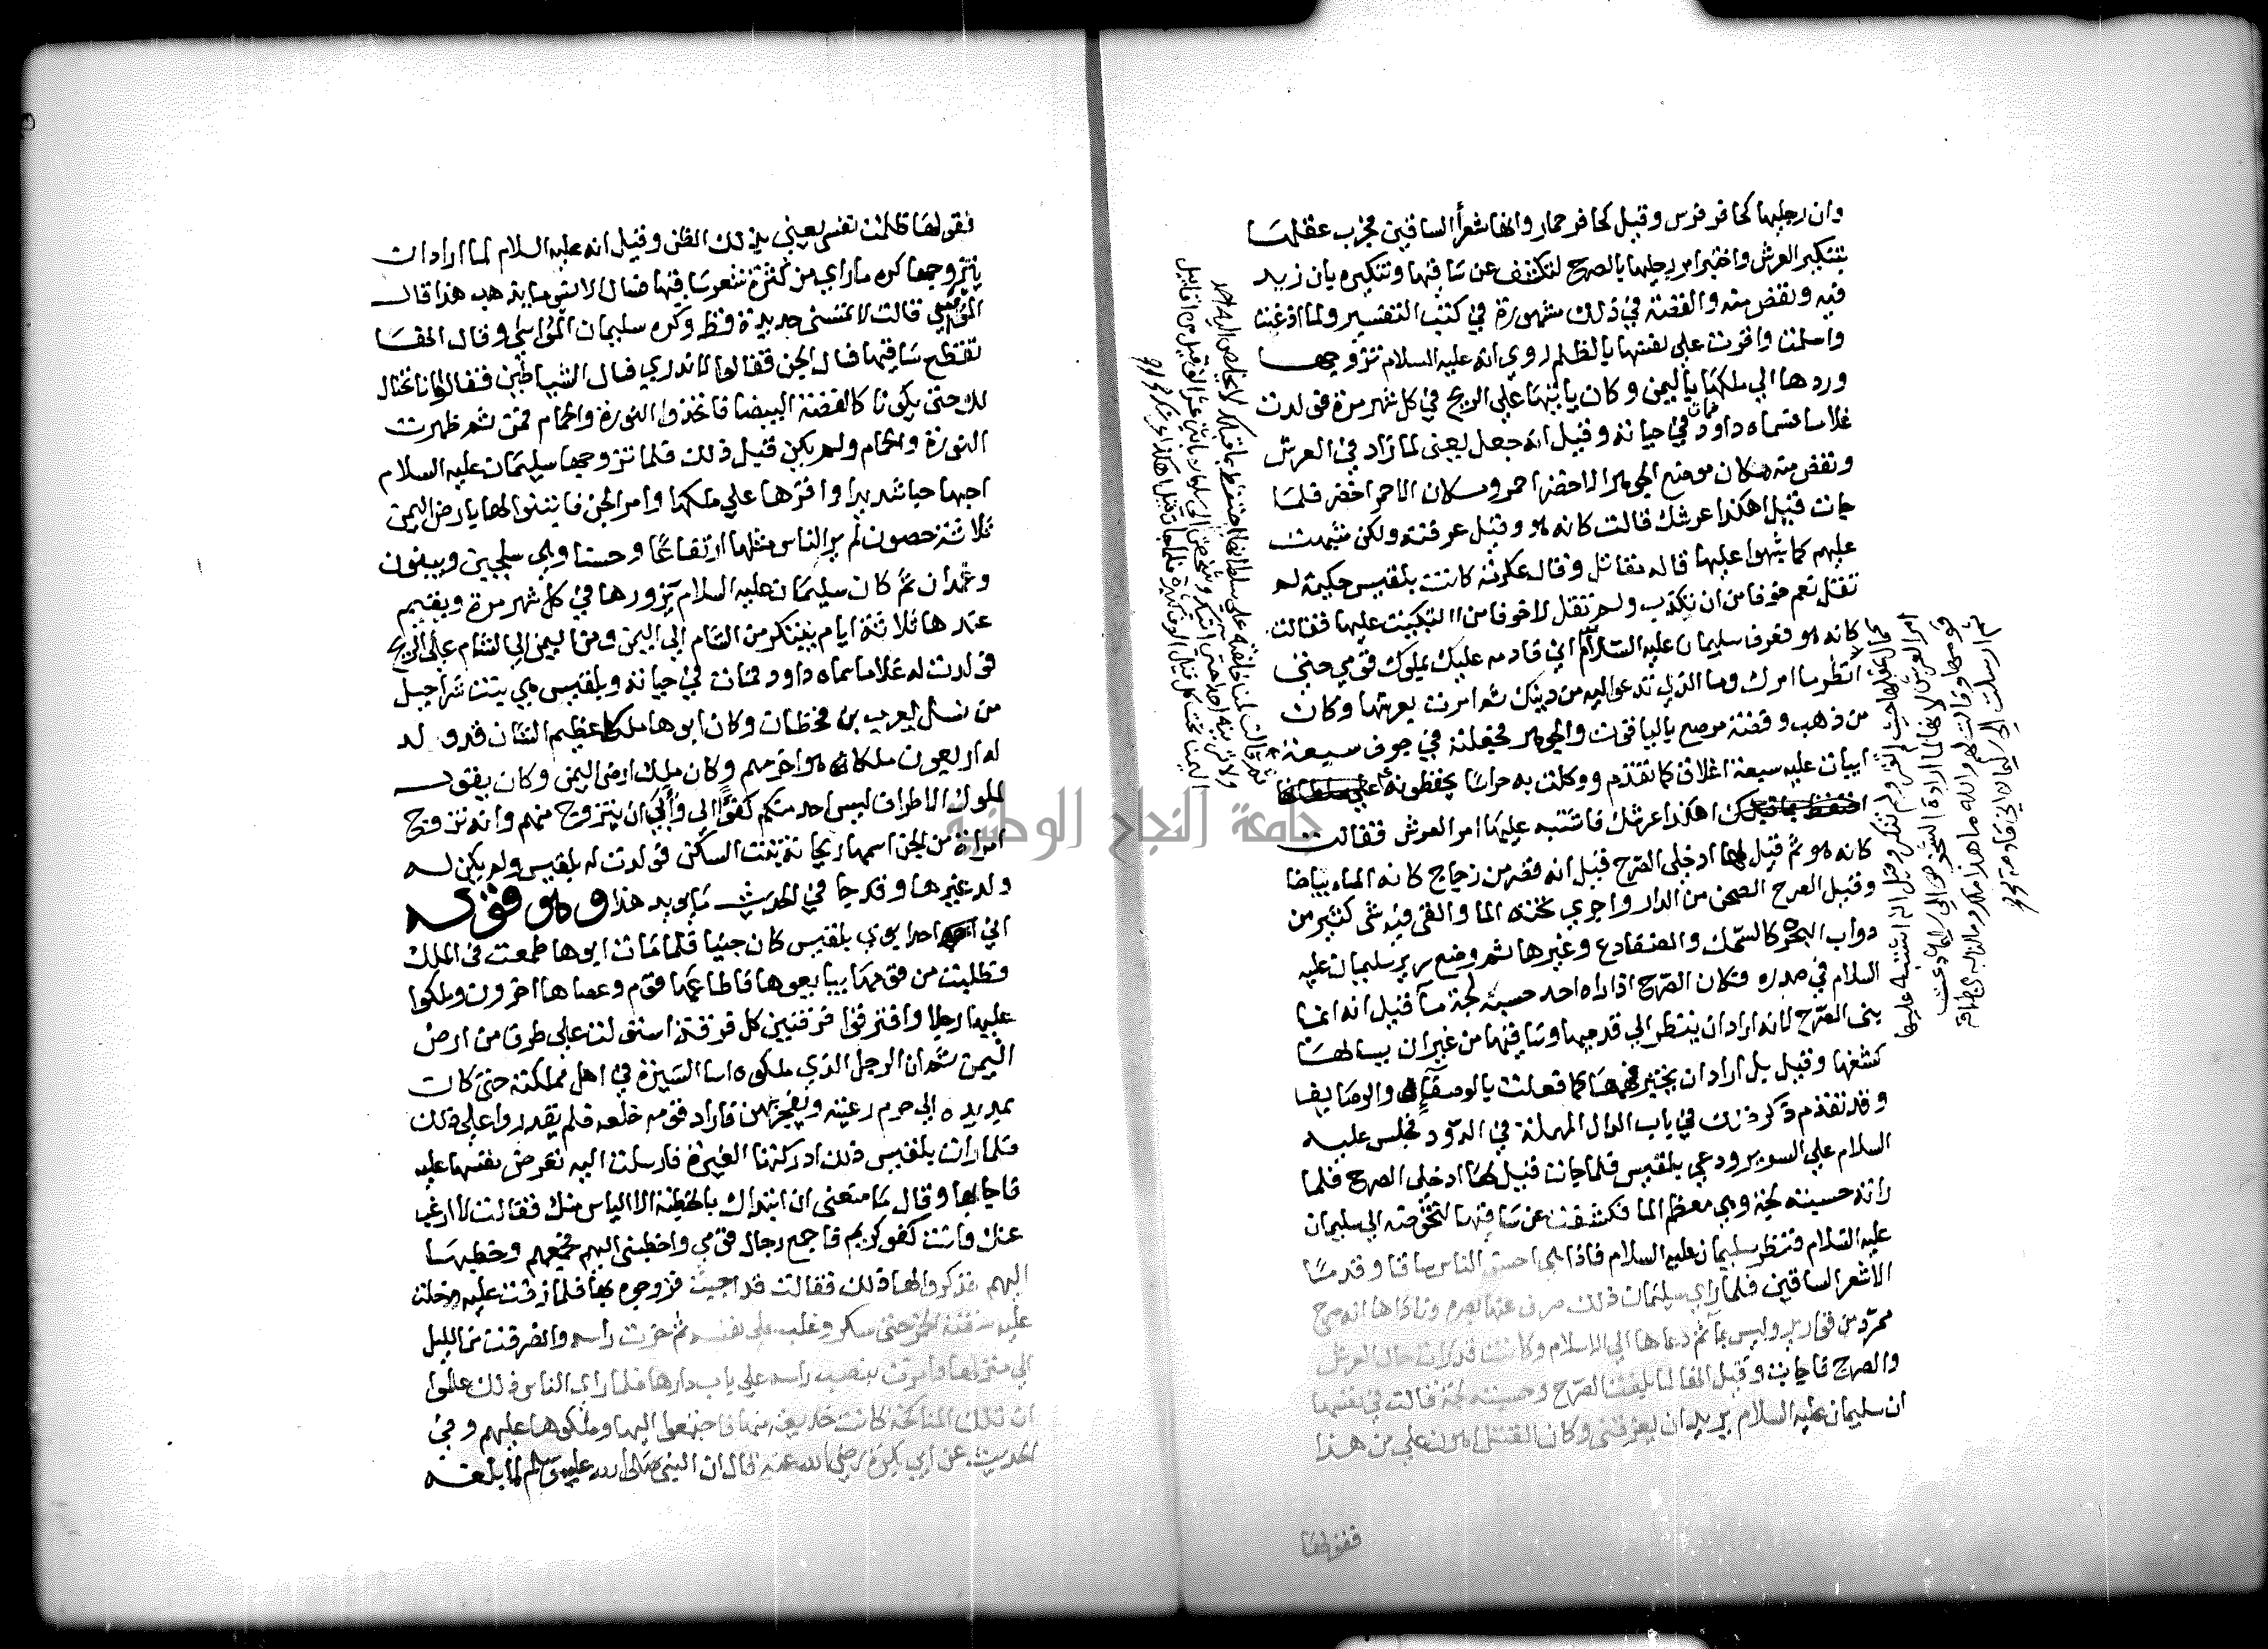 وان رجليها كحافر فرس وقيل كحافر حمار وانها شعرا الساقين فجرب عقلها
بتنكير العرش واختبر امر رجليها بالصرح لتكشف عن ساقيها وتنكيره بان زيد
فيه ونقص منه والقصة في ذلك مشهورة في كتب التفسير ولما اذعنت
واسلمت واقرت على نفسها بالظلم روي انه عليه السلام تزوجها
وردها الي ملكها باليمن وكان ياتيها على الريح في كل شهر مرة فولدت
غلاما فسماه داود فمات في حياته وقيل انه جعل يعني لما زاد في العرش
ونقص منه مكان موضع الجوهر الاخضر احمر ومكان الاحمر اخضر فلما
جات قيل اهكذا عرشك قالت كانه هو وقيل عرفته ولكن شبهت
عليهم كما شبهوا عليها قاله مقاتل وقال عكرمة كانت بلقيس حكيمة لم
تقل نعم خوفا من ان تكذب ولم تقل لا خوفا من التبكيت عليها فقالت
كانه هو فعرف سليمان عليه السلام اني قادمه عليك بملوك قومي حتى
انظر ما امرك وما الذي تدعو اليه من دينك ثم امرت بعرشها وكان
من ذهب وفضة مرصع بالياقوت والجوهر فجعلته في جوف سبعة
ابيات عليه سبعة اغلاق كما تقدم ووكلت به حراسا يحفظونه
اهكذا عرشك فاشتبه عليها امر العرش فقالت
كانه هو ثم قيل لها ادخلي الصرح قيل انه قصر من زجاج كانه الماء بياضا
وقيل الصرح الصحن من الدار واجري تحته الما والقي فيه شي كثير من
دواب البحر كالسمك والضفادع وغيرها ثم وضع سرير سليمان عليه
السلام في صدره فكان الصرح اذا راه احد حسبه لجة ماء قيل انه انما
بنى الصرح لانه اراد ان ينظر الي قدميها وساقيها من غير ان يسالها
كشفها وقيل بل اراد ان يختبر فهمها كما فعلت بالوصفاء والوصايف
وقد تقدم ذكر ذلك في باب الدال المهملة في الدود فجلس عليه
السلام علي السرير ودعي بلقيس فلما جات قيل لها ادخلى الصرح فلما
راته حسبته لجة وهي معظم الما فكشفت عن ساقيها لتخوضه الي سليمان
عليه السلام فنظر سليمان عليه السلام فاذا هي احسن الناس ساقا وقدما
الا شعر الساقين فلما راي سليمان ذلك صرف عنها بصره وناداها انه صرح
ممرد من قوارير وليس بماء ثم دعاها الي الاسلام وكانت قد رات حال العرش
والصرح فاجابت وقيل انها لما بلغت الصرح وحسبته لجة قالت في نفسها
ان سليمان عليه السلام يريد ان يغرقني وكان القتل اهون علي من هذا
فقولها
ثم ارسلت الي سليمان اني قادمة
قومها وقالت لهم والله ما هذا بملك وما لنا به من طاقة
فقولها ظلمت نفسي يعني بذلك الظن وقيل انه عليه السلام لما اراد ان
يتزوجها كره ما راي من كثرة شعر ساقيها فسال الانس ما يذهب هذا قالوا
الموسي قالت لا تمسني حديدة قط وكره سليمان المواسي وقال انها
تقطع ساقيها فسال الجن فقالوا لا ندري فسال الشياطين فقالوا انا نحتال
لك حتى يكونا كالفضة البيضا فاتخذوا النورة والحمام فمن ثم ظهرت
النورة والحمام ولم يكن قبل ذلك فلما تزوجها سليمان عليه السلام
احبها حبا شديدا واقرها علي ملكها وامر الجن فابتنوا لها بارض اليمن
ثلاثة حصون لم ير الناس مثلها ارتفاعا وحسنا وهي سلحين وبينون
وغمدان ثم كان سليمان عليه السلام يزورها في كل شهر مرة ويقيم
عندها ثلاثة ايام يبتكر من الشام الي اليمن ومن اليمن الي الشام على الريح
فولدت له غلاما سماه داود فمات في حياته وبلقيس هي بنت شراحيل
من نسل يعرب بن قحطان وكان ابوها ملكا عظيم الشان قد ولد
له اربعون ملكا هو اخرهم وكان ملك ارض اليمن وكان يقول
لملوك الاطراف ليس احد منكم كفؤا لي وابي ان يتزوج منهم وانه تزوج
امراة من الجن اسمها ريحانة بنت السكن فولدت له بلقيس ولم يكن له
ولد غيرها وقد جا في الحديث ما يويد هذا وهو قوله
ان احد ابوي بلقيس كان جنيا فلما مات ابوها طمعت في الملك
وطلبت من قومها يبايعوها فاطاعها قوم وعصاها اخرون وملكوا
عليها رجلا وافترقوا فرقتين كل فرقة استولت على طرف من ارض
اليمن ثم ان الرجل الذي ملكوه اسا السيرة في اهل مملكته حتى كان
يمد يده الي حرم رعيته ويفجر بهن فاراد قومه خلعه فلم يقدروا علي ذلك
فلما رات بلقيس ذلك ادركتها الغيرة فارسلت اليه تعرض نفسها عليه
فاجابها وقال ما منعني ان ابتدأك بالخطبة الا الياس منك فقالت لا ارغب
عنك فانت كفو كريم فاجمع رجال قومي واخطبني اليهم فجمعهم وخطبها
اليهم فذكروا لها ذلك فقالت قد اجبت فزوجوه بها فلما زفت عليه ودخلت
عليه سقته الخمر حتى سكر وغلب علي نفسه ثم حزت راسه وانصرفت من الليل
الي منزلها وامرت بنصب راسه علي باب دارها فلما راي الناس ذلك علموا
ان تلك المناكحة كانت خديعة منها فاجتمعوا اليها وملكوها عليهم وفي
الحديث عن ابي بكرة رضي الله عنه قال ان النبي صلى الله عليه وسلم لما بلغه
جامعة النجاح الوطنية